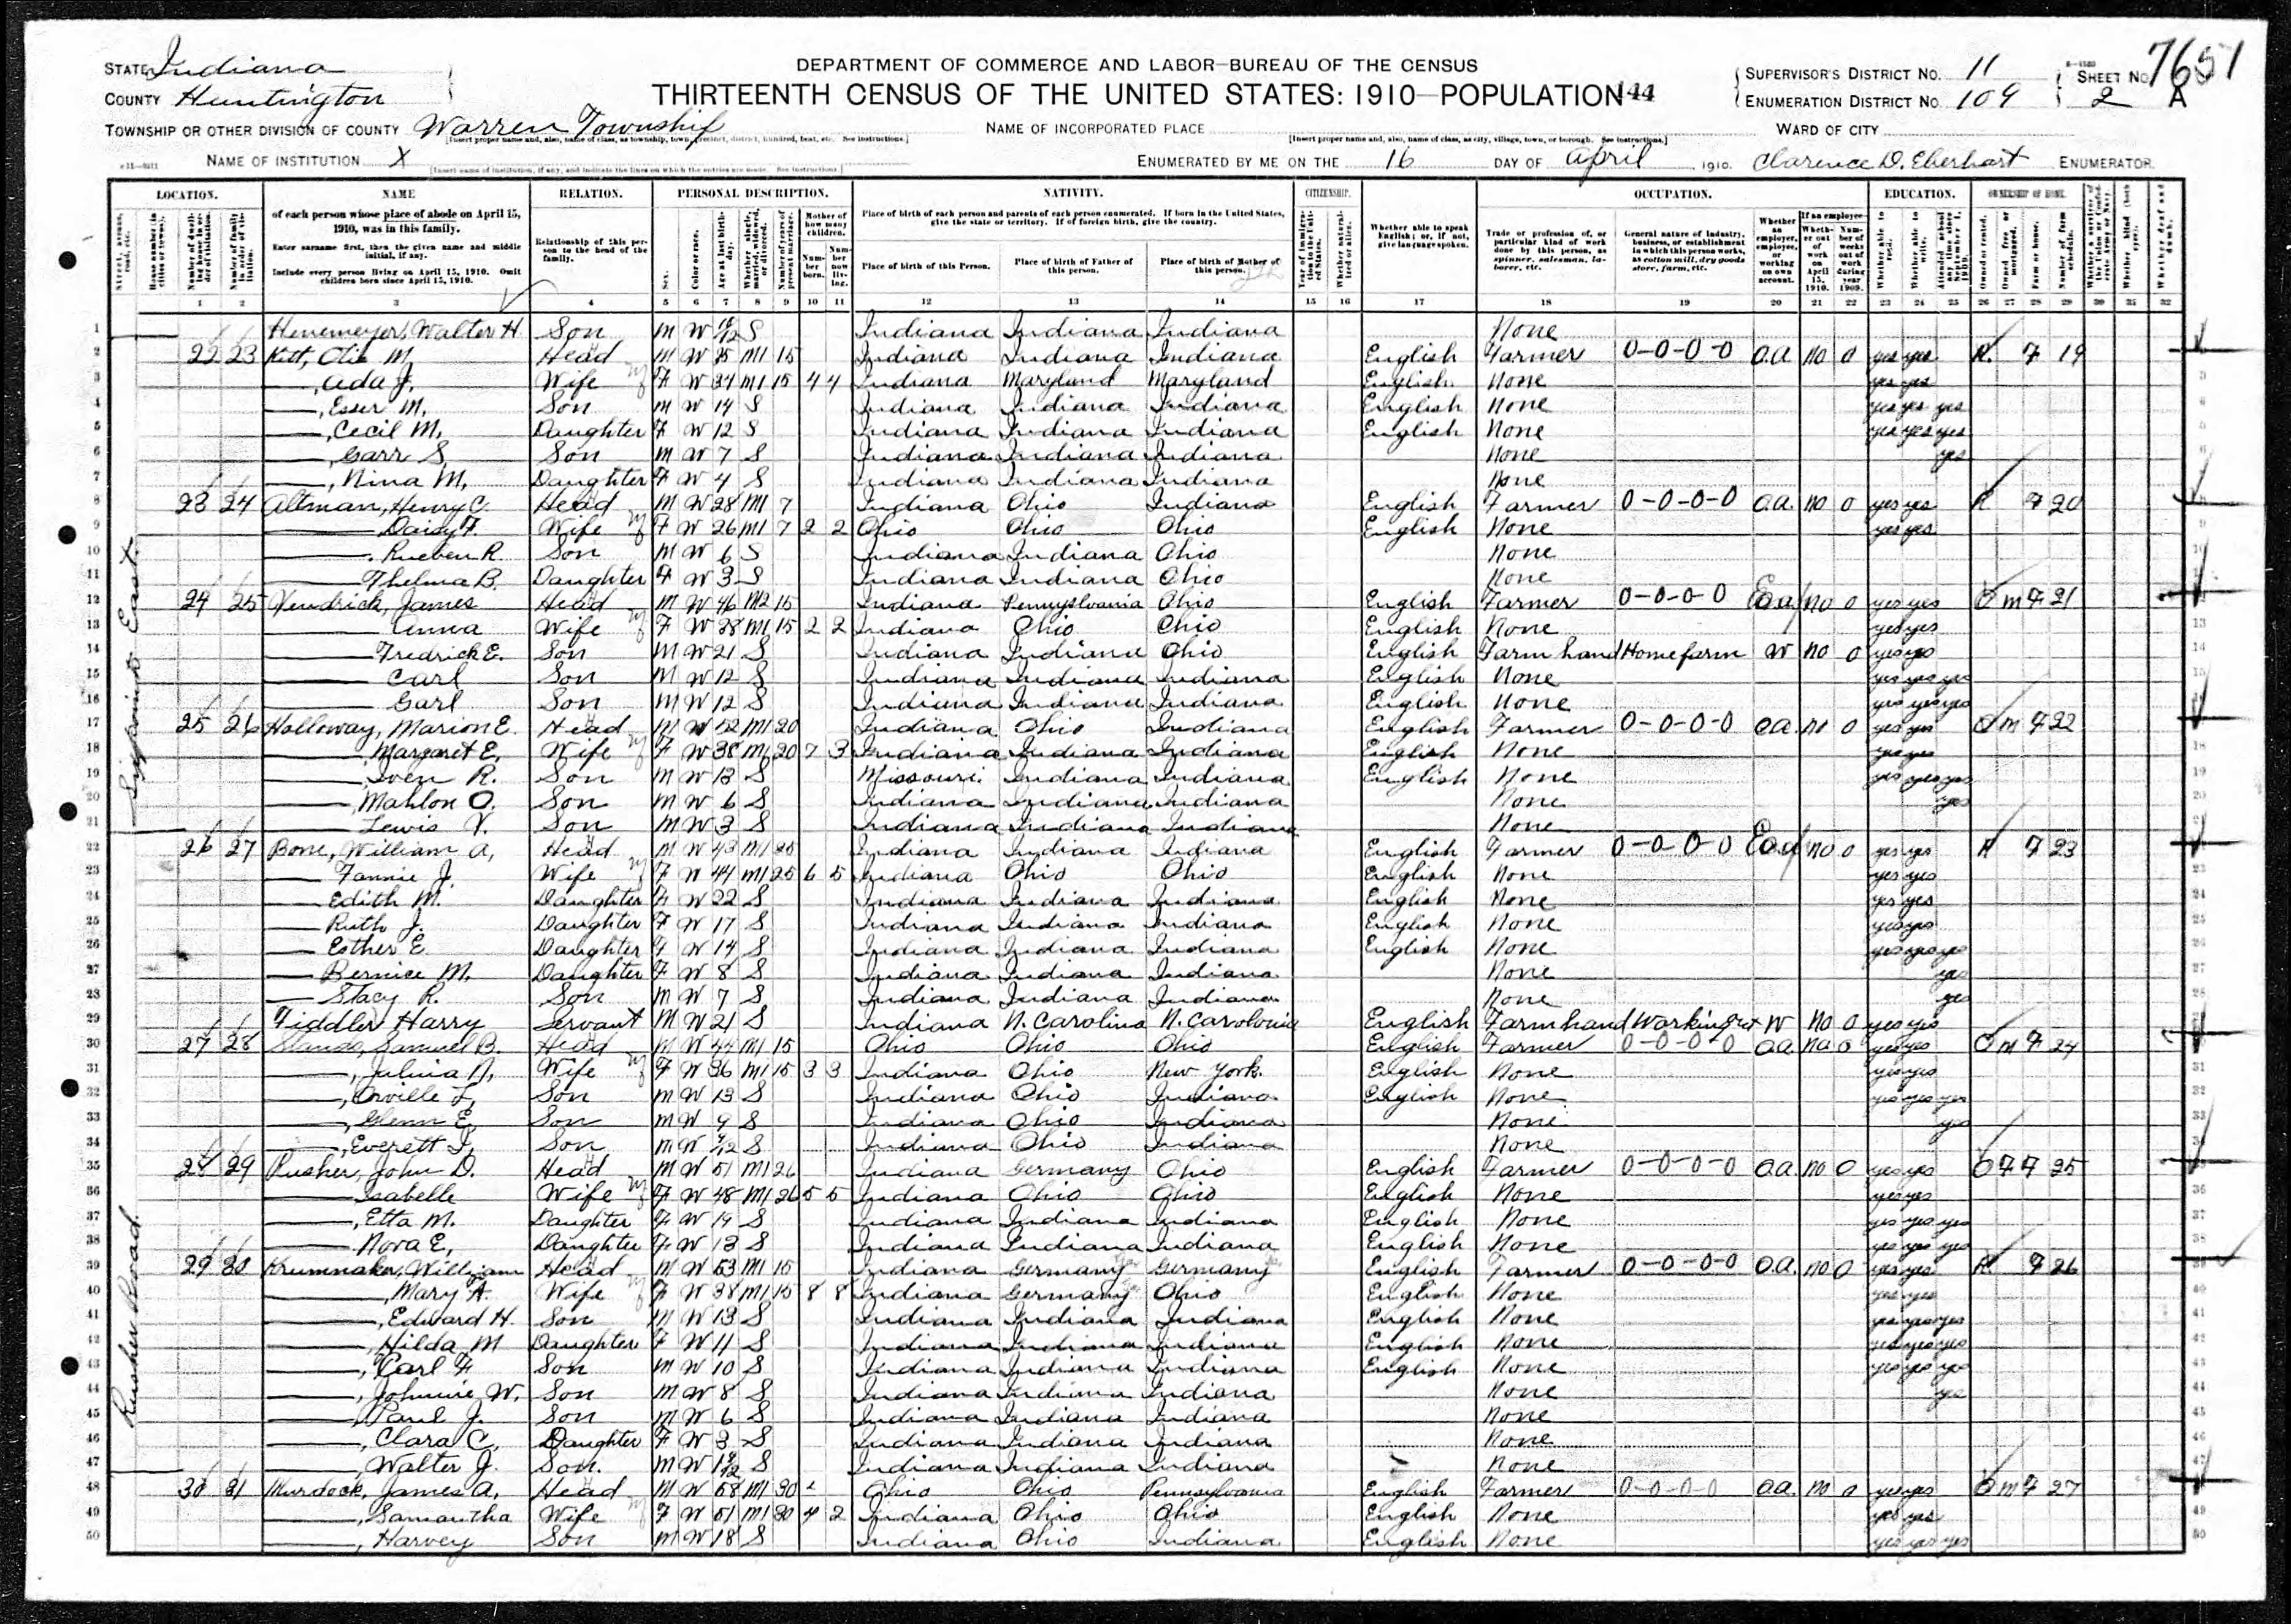 STATE Indiana
COUNTY Huntington
TOWNSHIP OR OTHER DIVISION OF COUNTY Warren Township
NAME OF INSTITUTION X
DEPARTMENT OF COMMERCE AND LABOR—BUREAU OF THE CENSUS
THIRTEENTH CENSUS OF THE UNITED STATES: 1910—POPULATION 144
NAME OF INCORPORATED PLACE
ENUMERATED BY ME ON THE 16 DAY OF April 1910. Clarence D. Eberhart ENUMERATOR.
SUPERVISOR'S DISTRICT No. 11
ENUMERATION DISTRICT No. 109
SHEET No. 2 A
7651
WARD OF CITY
LOCATION. NAME RELATION. PERSONAL DESCRIPTION. NATIVITY. CITIZENSHIP. OCCUPATION. EDUCATION. OWNERSHIP OF HOME.
of each person whose place of abode on April 15, 1910, was in this family.
Enter surname first, then the given name and middle initial, if any.
Include every person living on April 15, 1910. Omit children born since April 15, 1910.
Relationship of this person to the head of the family.
Place of birth of each person and parents of each person enumerated. If born in the United States, give the state or territory. If of foreign birth, give the country.
Place of birth of this Person. Place of birth of Father of this person. Place of birth of Mother of this person.
Whether able to speak English; or, if not, give language spoken.
Trade or profession of, or particular kind of work done by this person, as spinner, salesman, laborer, etc.
General nature of industry, business, or establishment in which this person works, as cotton mill, dry goods store, farm, etc.
Whether an employer, employee, or working on own account.
1 2 3 4 5 6 7 8 9 10 11 12 13 14 15 16 17 18 19 20 21 22 23 24 25 26 27 28 29 30 31 32
1 Henemeyer, Walter H. Son M W S Indiana Indiana Indiana None
2 22 23 Kitt, Otis M. Head M W 35 M1 15 Indiana Indiana Indiana English Farmer 0-0-0-0 O.A. no 0 yes yes R. F 19
3 —, Ada J. Wife F W 34 M1 15 4 4 Indiana Maryland Maryland English None yes yes
4 —, Esser M. Son M W 14 S Indiana Indiana Indiana English None yes yes yes
5 —, Cecil M. Daughter F W 12 S Indiana Indiana Indiana English None yes yes yes
6 —, Garr S. Son M W 7 S Indiana Indiana Indiana None yes
7 —, Nina M. Daughter F W 4 S Indiana Indiana Indiana None
8 23 24 Altman, Henry C. Head M W 28 M1 7 Indiana Ohio Indiana English Farmer 0-0-0-0 O.A. no 0 yes yes R F 20
9 — Daisy F. Wife F W 26 M1 7 2 2 Ohio Ohio Ohio English None yes yes
10 — Rueben R. Son M W 6 S Indiana Indiana Ohio None
11 — Thelma B. Daughter F W 3 S Indiana Indiana Ohio None
12 24 25 James Head M W 46 M2 15 Indiana Pennsylvania Ohio English Farmer 0-0-0-0 no 0 yes yes O M F 21
13 — Anna Wife F W 38 M1 15 2 2 Indiana Ohio Ohio English None yes yes
14 — Fredrick E. Son M W 21 S Indiana Indiana Ohio English Farm hand Home farm W no 0 yes yes
15 — Carl Son M W 12 S Indiana Indiana Indiana English None yes yes yes
16 — Earl Son M W 12 S Indiana Indiana Indiana English None yes yes yes
17 25 26 Holloway, Marion E. Head M W M1 20 Indiana Ohio Indiana English Farmer 0-0-0-0 O.A. no 0 yes yes O M F 22
18 — Margaret E. Wife F W 38 M1 20 7 3 Indiana Indiana Indiana English None yes yes
19 — Iven R. Son M W 13 S Missouri Indiana Indiana English None yes yes yes
20 —, Mahlon O. Son M W 6 S Indiana Indiana Indiana None yes
21 — Lewis V. Son M W 3 S Indiana Indiana Indiana None
22 26 27 Bone, William A. Head M W 43 M1 25 Indiana Indiana Indiana English Farmer 0-0-0-0 no 0 yes yes R F 23
23 — Fannie J. Wife F W 44 M1 25 6 5 Indiana Ohio Ohio English None yes yes
24 — Edith M. Daughter F W 22 S Indiana Indiana Indiana English None yes yes
25 — Ruth J. Daughter F W 17 S Indiana Indiana Indiana English None yes yes
26 — Esther E Daughter F W 14 S Indiana Indiana Indiana English None yes yes yes
27 — Bernice M. Daughter F W 8 S Indiana Indiana Indiana None yes
28 — Stacy R. Son M W 7 S Indiana Indiana Indiana None yes
29 Fiddler Harry Servant M W 21 S Indiana N. Carolina N. Carolonia English Farmhand Working out W no 0 yes yes
30 27 28 Samuel B. Head M W 44 M1 15 Ohio Ohio Ohio English Farmer 0-0-0-0 O.A. no 0 yes yes O M F 24
31 —, Wife F W 36 M1 15 3 3 Indiana Ohio New York. English None yes yes
32 —, Orville L. Son M W 13 S Indiana Ohio Indiana English None yes yes yes
33 —, Glenn E. Son M W 9 S Indiana Ohio Indiana None yes
34 —, Everett Son M W S Indiana Ohio Indiana None
35 28 29 Rusher, John D. Head M W 51 M1 26 Indiana Germany Ohio English Farmer 0-0-0-0 O.A. no 0 yes yes O F F 25
36 — Isabelle Wife F W 48 M1 26 5 5 Indiana Ohio Ohio English None yes yes
37 —, Etta M. Daughter F W 19 S Indiana Indiana Indiana English None yes yes yes
38 — Nora E. Daughter F W 13 S Indiana Indiana Indiana English None yes yes yes
39 29 30 Krumnaker, William Head M W 53 M1 15 Indiana Germany Germany English Farmer 0-0-0-0 O.A. no 0 yes yes R. F 26
40 —, Mary A. Wife F W 38 M1 15 8 8 Indiana Germany Ohio English None yes yes
41 —, Edward H. Son M W 13 S Indiana Indiana Indiana English None yes yes yes
42 —, Hilda M Daughter F W 11 S Indiana Indiana Indiana English None yes yes yes
43 —, Carl F. Son M W 10 S Indiana Indiana Indiana English None yes yes yes
44 —, Johnnie W. Son M W 8 S Indiana Indiana Indiana None yes
45 —, Paul J. Son M W 6 S Indiana Indiana Indiana None
46 —, Clara C. Daughter F W 3 S Indiana Indiana Indiana None
47 —, Walter J. Son. M W S Indiana Indiana Indiana None
48 30 31 Murdock, James A. Head M W 58 M1 30 Ohio Ohio Pennsylvania English Farmer 0-0-0-0 O.A. no 0 yes yes O M F 27
49 —, Samantha Wife F W 51 M1 30 4 2 Indiana Ohio Ohio English None yes yes
50 —, Harvey Son M W 18 S Indiana Ohio Indiana English None yes yes yes
East
Rusher Road